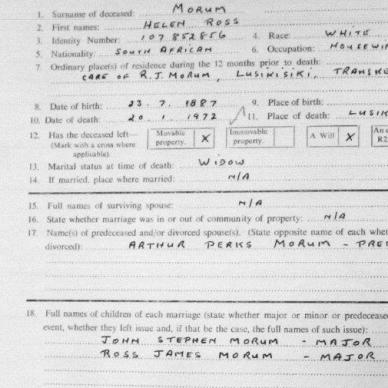 1. Surname of deceased: MORUM
2. First names: HELEN ROSS
3. Identity Number: 107852856 4. Race: WHITE
5. Nationality: SOUTH AFRICAN 6. Occupation: HOUSEWI
7. Ordinary place(s) of residence during the 12 months prior to death:
CARE OF R.J. MORUM, LUSIKISIKI, TRANSKE
8. Date of birth: 23.7.1887 9. Place of birth:
10. Date of death: 20.1.1972 11. Place of death: LUSIK
12. Has the deceased left— Movable property. X Immovable property. A Will X An e R2
(Mark with a cross where applicable)
13. Marital status at time of death: WIDOW
14. If married, place where married: N/A
15. Full names of surviving spouse: N/A
16. State whether marriage was in or out of community of property: N/A
17. Name(s) of predeceased and/or divorced spouse(s). (State opposite name of each whet
divorced): ARTHUR PERKS MORUM - PRED
18. Full names of children of each marriage (state whether major or minor or predecease
event, whether they left issue and, if that be the case, the full names of such issue):
JOHN STEPHEN MORUM - MAJOR
ROSS JAMES MORUM - MAJOR